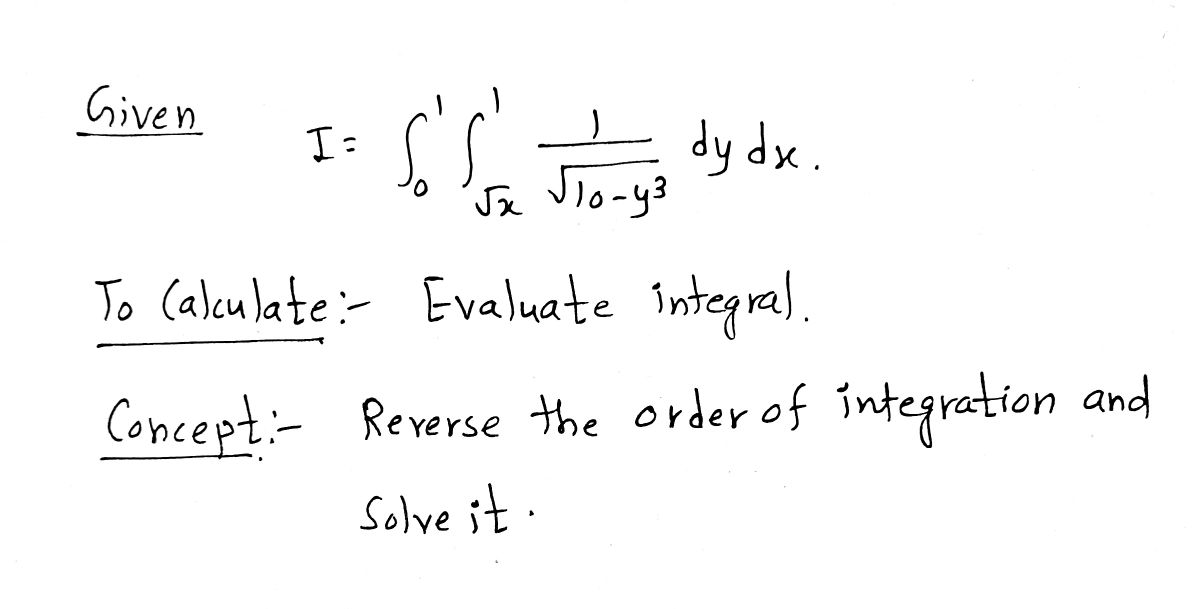 Given I = ∫₀¹ ∫_√x¹ 1/√(10-y³) dy dx.
To Calculate:- Evaluate integral.
Concept:- Reverse the order of integration and
Solve it.